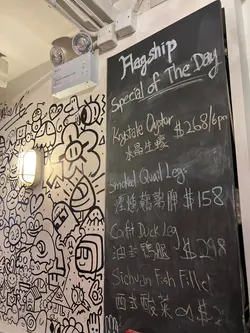 Flagship
Special of The Day
Krystale Oyster $268/6pc
水晶生蠔
Smoked Quail Legs
$158
Confit Duck Leg
油封鴨腿 $298
Sichuan Fish Fillet
酸菜